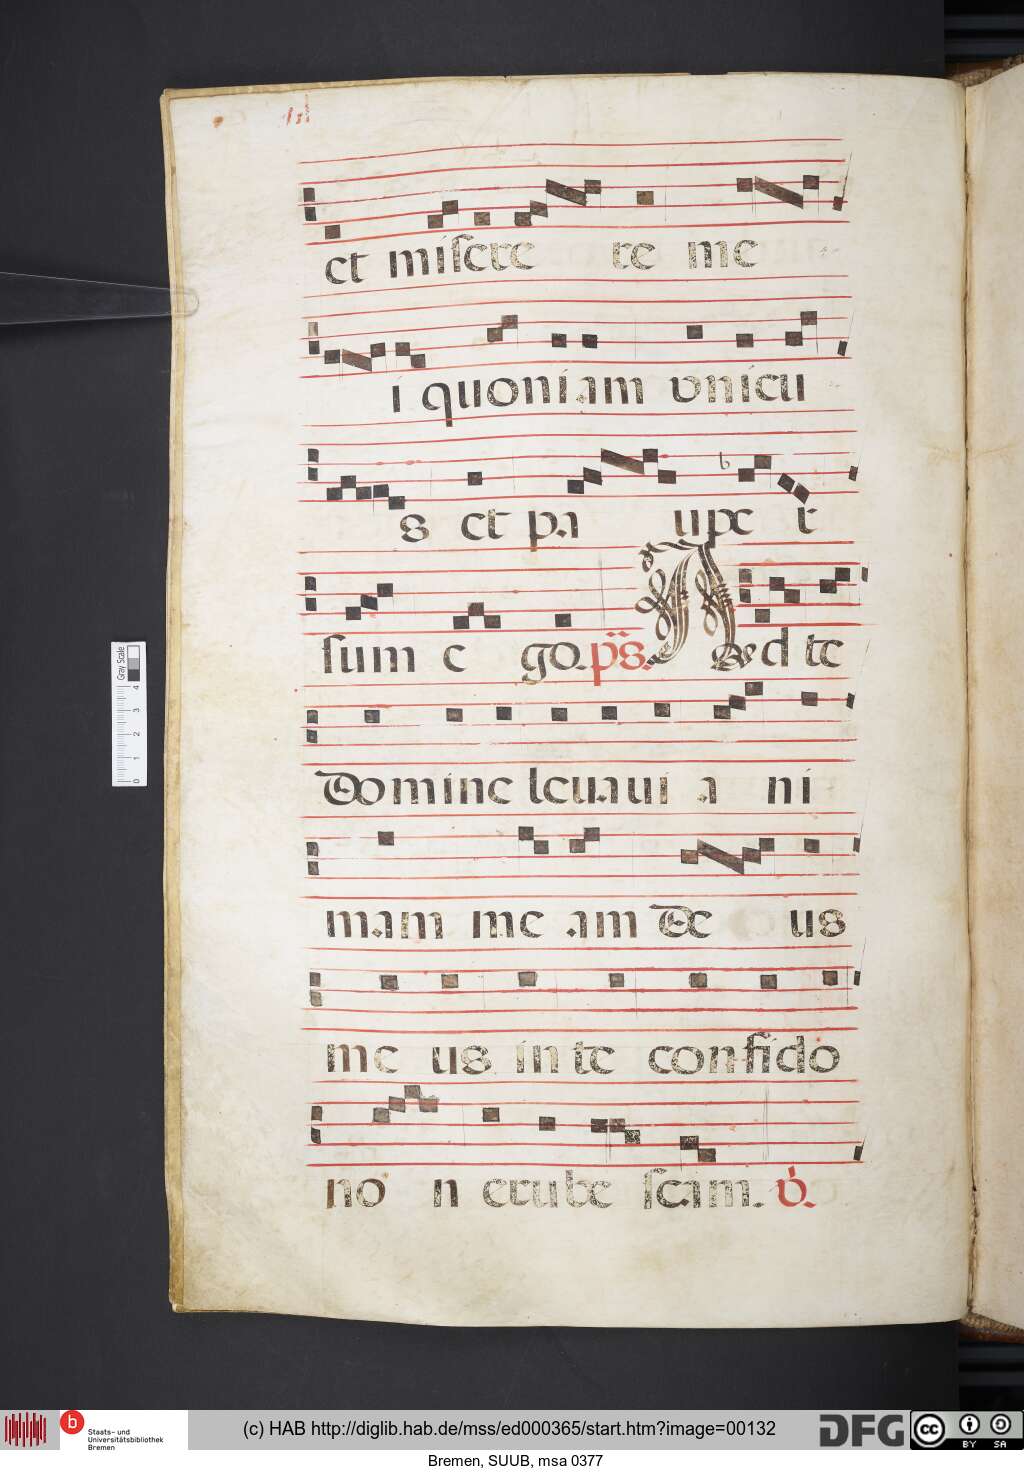 et misere re me
i quoniam vnicu
s et pa upe r
sum e go. p̃s. Ad te
Domine leuaui a ni
mam me am De us
me us in te confido
no n erube scam. v̇.
Gray Scale
4
3
2
1
0
b
Staats- und
Universitätsbibliothek
Bremen
(c) HAB http://diglib.hab.de/mss/ed000365/start.htm?image=00132
DFG
cc
BY SA
Bremen, SUUB, msa 0377